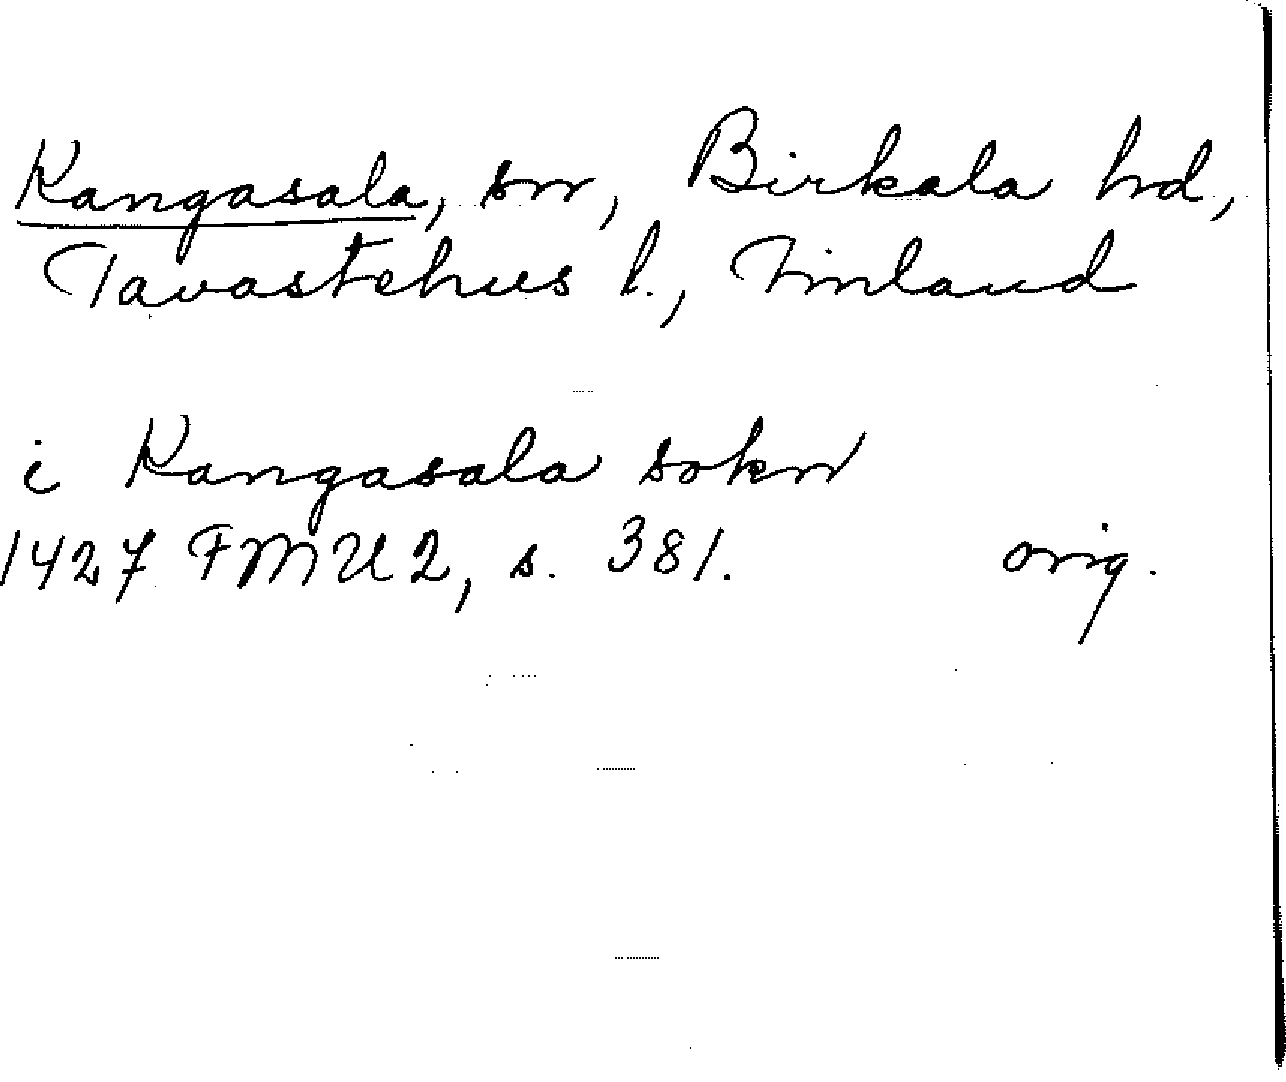 Kangasala, sn, Birkala hd,
Tavastehus l., Finland
i Kangasala sokn
1427 FMU 2, s. 381. orig.